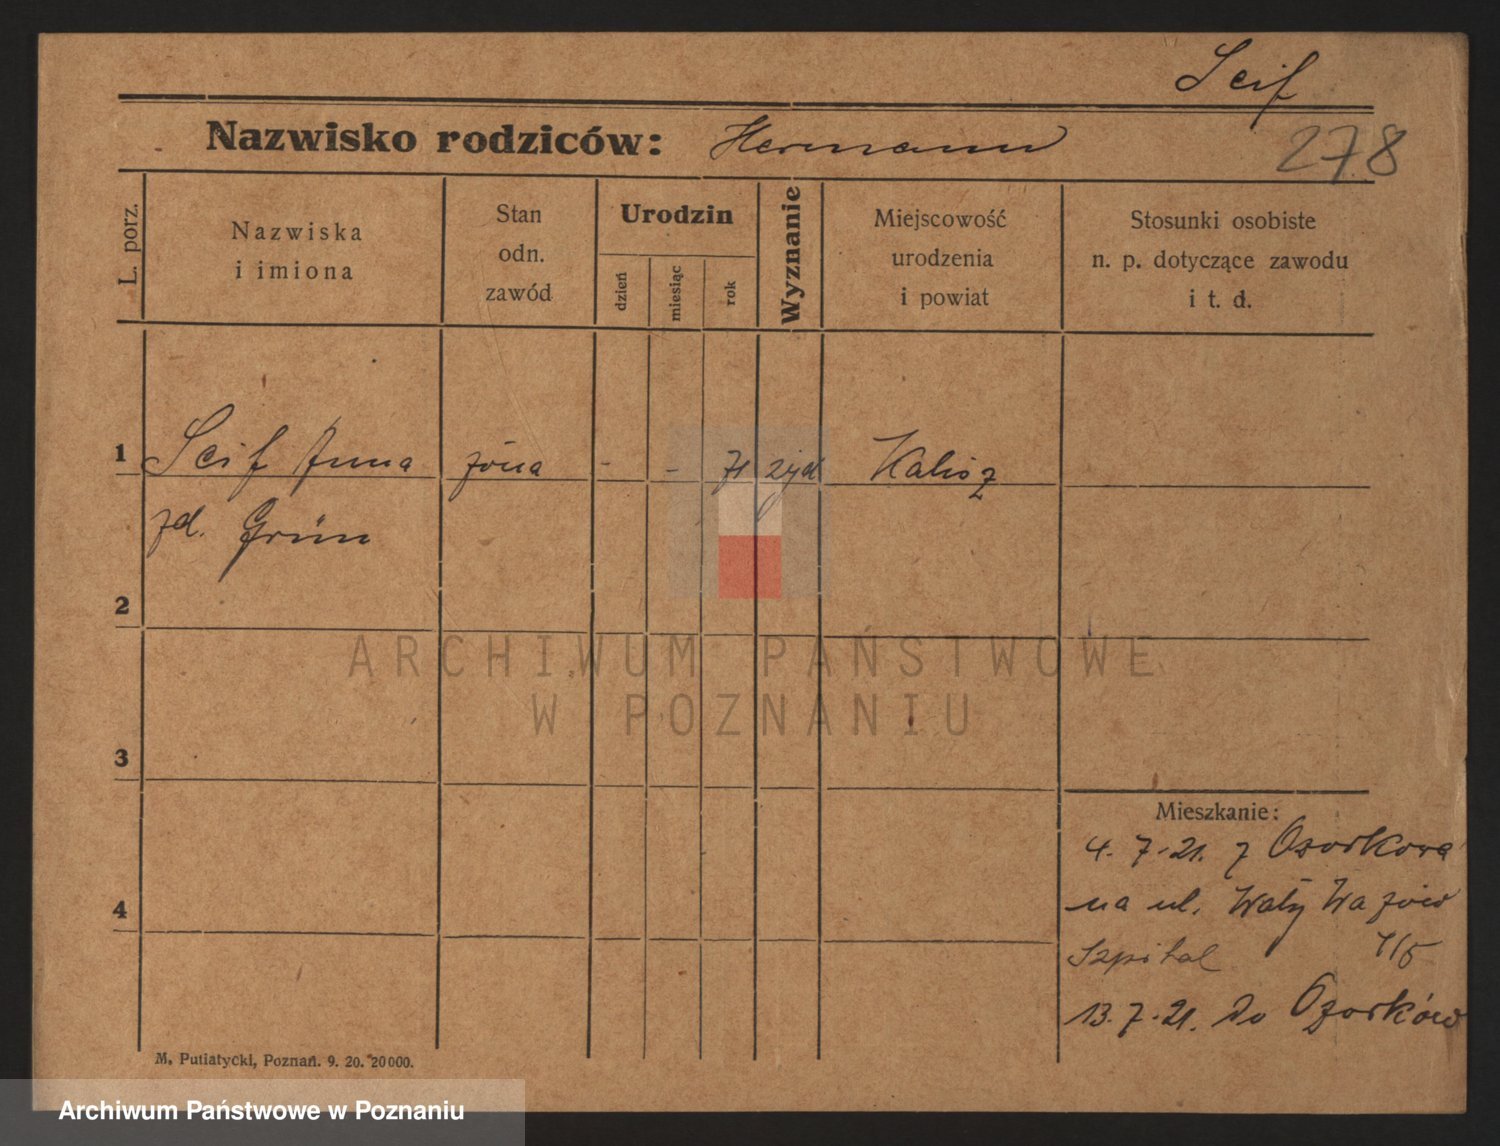 Seif
Nazwisko rodziców: Hermann
278
L. porz.
Nazwiska
i imiona
Stan
odn.
zawód
Urodzin
dzień
miesiąc
rok
Wyznanie
Miejscowość
urodzenia
i powiat
Stosunki osobiste
n. p. dotyczące zawodu
i t. d.
1 Seif Anna żona - - 71 żyd Kalisz
zd. Grün
2
3
4
Mieszkanie:
4. 7. 21. z Ozorkowa
na ul. Wały Wazów
Szpital 4/5
13. 7. 21. do Ozorków
M. Putiatycki, Poznań. 9. 20. 20000.
ARCHIWUM PAŃSTWOWE
W POZNANIU
Archiwum Państwowe w Poznaniu